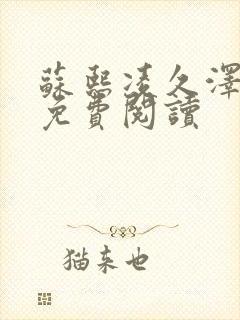 蘇熙凌久澤
免費閱讀
猫来也